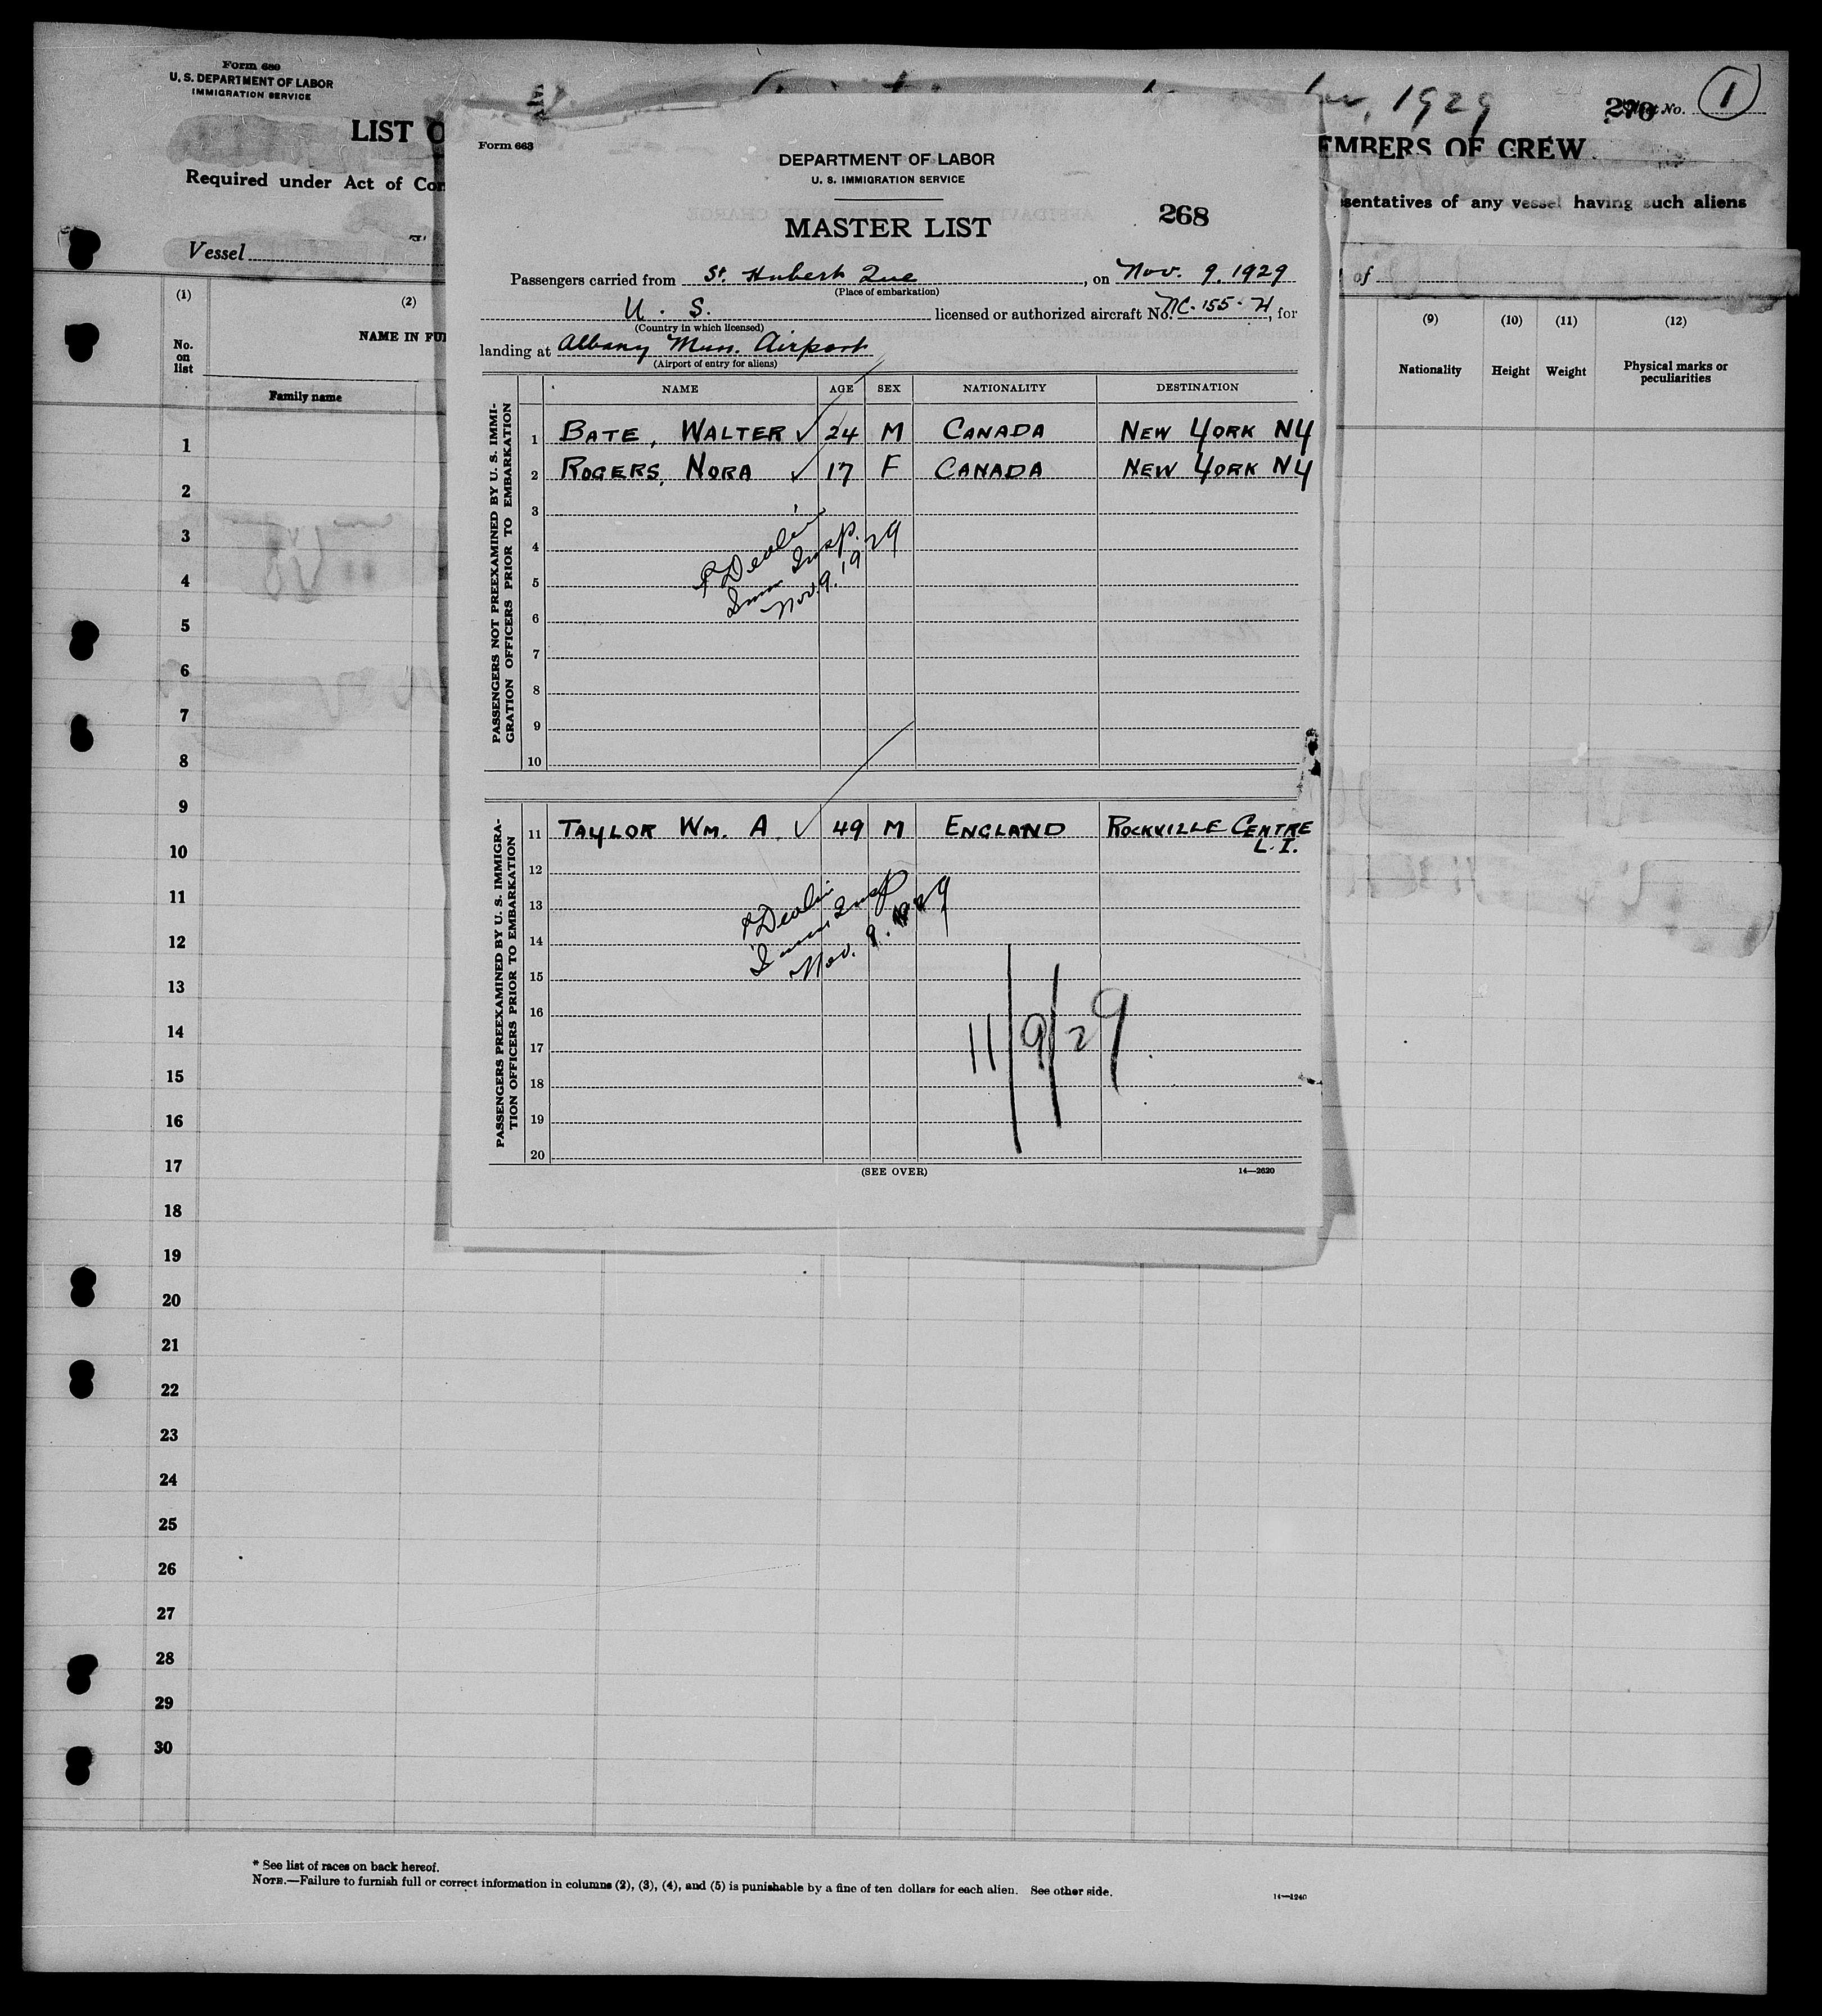 Form 689
U. S. DEPARTMENT OF LABOR
IMMIGRATION SERVICE
, 1929
270
No. 1
LIST O
EMBERS OF CREW
Required under Act of Con
sentatives of any vessel having such aliens
Vessel
of
(1)
(2)
(9)
(10)
(11)
(12)
No. on list
NAME IN FUL
Family name
Nationality
Height
Weight
Physical marks or peculiarities
Form 663
DEPARTMENT OF LABOR
U. S. IMMIGRATION SERVICE
268
MASTER LIST
Passengers carried from St. Hubert Que, on Nov. 9. 1929
(Place of embarkation)
U. S. licensed or authorized aircraft No. NC-155-H, for
(Country in which licensed)
landing at Albany Mun. Airport
(Airport of entry for aliens)
NAME AGE SEX NATIONALITY DESTINATION
PASSENGERS NOT PREEXAMINED BY U. S. IMMI-
GRATION OFFICERS PRIOR TO EMBARKATION
1 BATE, WALTER ✓ 24 M CANADA NEW YORK NY
2 ROGERS, NORA ✓ 17 F CANADA NEW YORK NY
3
4
5
6
7
8
9
10
Devlin
Imm Insp.
Nov. 9. '1929
PASSENGERS PREEXAMINED BY U. S. IMMIGRA-
TION OFFICERS PRIOR TO EMBARKATION
11 TAYLOR WM. A. ✓ 49 M ENGLAND ROCKVILLE CENTRE
L. I.
12
13
14
15
16
17
18
19
20
Devlin
Imm Insp
Nov. 9. 1929
11/9/29
(SEE OVER)
14—2620
1
2
3
4
5
6
7
8
9
10
11
12
13
14
15
16
17
18
19
20
21
22
23
24
25
26
27
28
29
30
* See list of races on back hereof.
NOTE.—Failure to furnish full or correct information in columns (2), (3), (4), and (5) is punishable by a fine of ten dollars for each alien. See other side.
14—1240